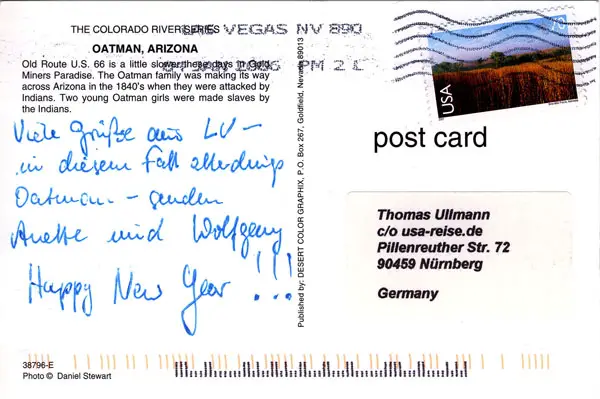 THE COLORADO RIVER SERIES
LAS VEGAS NV 890
OATMAN, ARIZONA
Old Route U.S. 66 is a little slower these days in Gold
Miners Paradise. The Oatman family was making its way
across Arizona in the 1840's when they were attacked by
Indians. Two young Oatman girls were made slaves by
the Indians.
JAN 2006 PM 2 L
USA
post card
Viele Grüße aus LV –
in diesem Fall allerdings
Oatman – senden
Anette und Wolfgang
Happy New Year !!!
Published by: DESERT COLOR GRAPHIX, P.O. Box 267, Goldfield, Nevada 89013
Thomas Ullmann
c/o usa-reise.de
Pillenreuther Str. 72
90459 Nürnberg
Germany
38796-E
Photo © Daniel Stewart